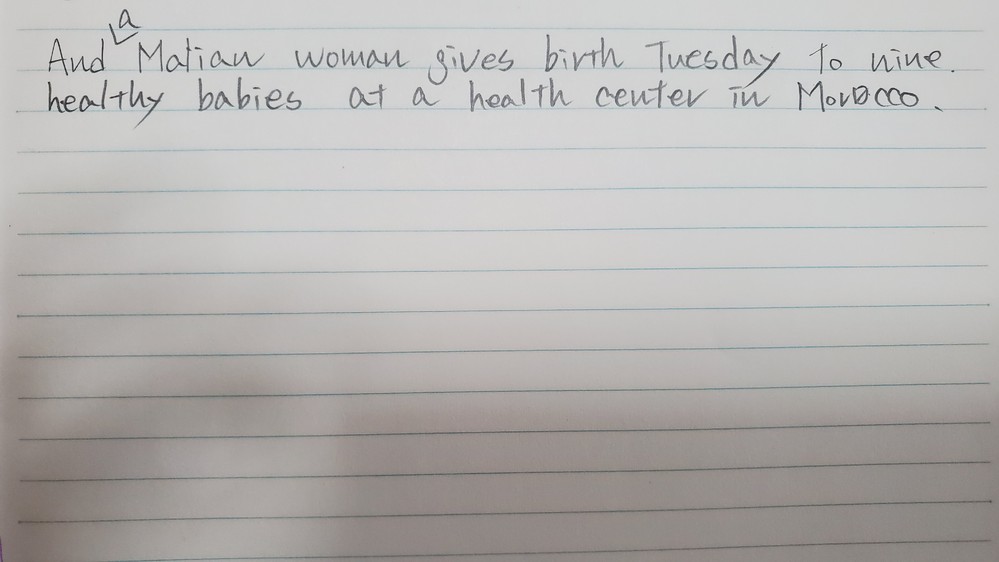 And a Malian woman gives birth Tuesday to nine.
healthy babies at a health center in Morocco.